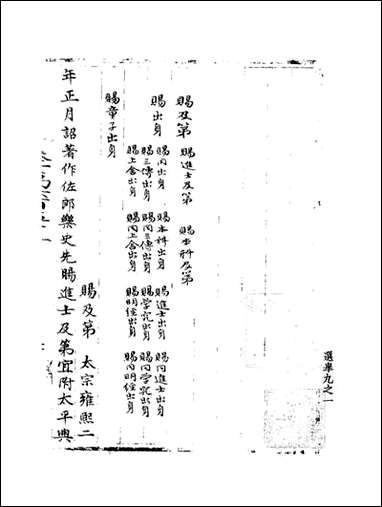 選舉九之一
賜及第 賜進士及第 賜本科及第
賜出身
賜同出身 賜本科出身 賜進士出身 賜同進士出身
賜三傳出身 賜同三傳出身 賜学究出身 賜同学究出身
賜上舍出身 賜同上舍出身 賜明經出身 賜同明經出身
賜童子出身
賜及第 太宗雍熙二
年正月詔著作佐郎樂史先賜進士及第宜附太平興